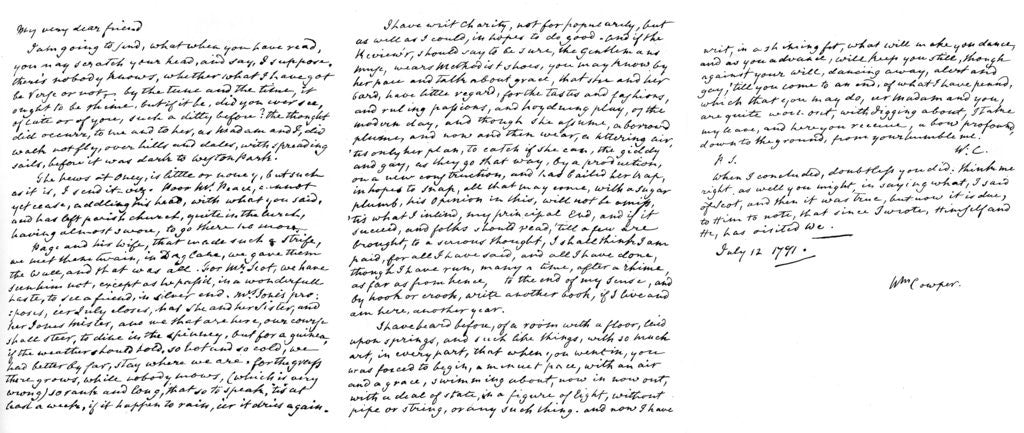 My very dear friend
I am going to send, what when you have read,
you may scratch your head, and say, I suppose,
there's nobody knows, whether what I have got
be Verse or not, by the tune and the time, it
ought to be rhime. but if it be, did you ever see,
of late or of yore, such a ditty before? the thought
did occurr, to me and to her, as Madam and I, did
walk not fly, over hills and dales, with spreading
sails, before it was dark to Weston Park.
The news at Oney, is little or noney, but such
as it is, I send it-viz. Poor Mr. Peace, cannot
yet cease, addling his head, with what you said,
and has left parish church, quite in the lurch,
having almost swore, to go there no more.
Page and his wife, that made such a strife,
we met them twain, in Dag Lane, we gave them
the wall, and that was all. For Mr. Scot, we have
seen him not, except as he pass'd, in a wonderfull
haste, to see a friend, in silver end. Mrs. Jones pro:
:poses, e'er July closes, that She and her Sister, and
her Jones Mister, and we that are here, our course
shall steer, to dine in the spinney, but for a guinea,
if the weather should hold, so hot and so cold, we
had better by far, stay where we are. for the grass
there grows, while nobody mows, (which is very
wrong) so rank and long, that so to speak, 'tis at
least a week, if it happen to rain, e'er it dries again.
I have writ Charity, not for popularity, but
as well as I could, in hopes to do good. And if the
Review'r, should say to be sure, the Gentleman's
Muse, wears Methodist shoes, you may know by
her pace and talk about grace, that she and her
bard, have little regard, for the tastes and fashions,
and ruling passions, and hoyd'ning play, of the
modern day, and though she assume, a borrow'd
plume, and now and then wear, a tittering air,
'tis only her plan, to catch if she can, the giddy
and gay, as they go that way, by a production,
on a new construction, and has baited her trap,
in hopes to snap, all that may come, with a sugar
plumb, his Opinion in this, will not be amiss,
'tis what I intend, my principal End, and if it
succeed, and folks should read, 'till a few are
brought, to a serious thought, I shall think I am
paid, for all I have said, and all I have done,
though I have run, many a time, after a rhime,
as far as from hence, to the end of my sense, and
by hook or crook, write another book, if I live and
am here, another year.
I have heard before, of a room with a floor, laid
upon springs, and such like things, with so much
art, in every part, that when you went in, you
was forced to begin, a minuet pace, with an air
and a grace, swimming about, now in now out,
with a deal of state, in a figure of Eight, without
pipe or string, or any such thing. and now I have
writ, in a rhiming fit, what will make you dance,
and as you advance, will keep you still, though
against your will, dancing away, alert and
gay, 'till you come to an end, of what I have penn'd,
which that you may do, e'er Madam and you,
are quite worn out, with jigging about, I take
my leave, and here you receive, a bow profound,
down to the ground, from your humble me.
W. C.
P. S.
When I concluded, doubtless you did, think me
right, as well you might, in saying what, I said
of Scot, and then it was true, but now it is due,
to Him to note, that since I wrote, Himself and
He, has visited We.
July 12 1781.
Wm Cowper.